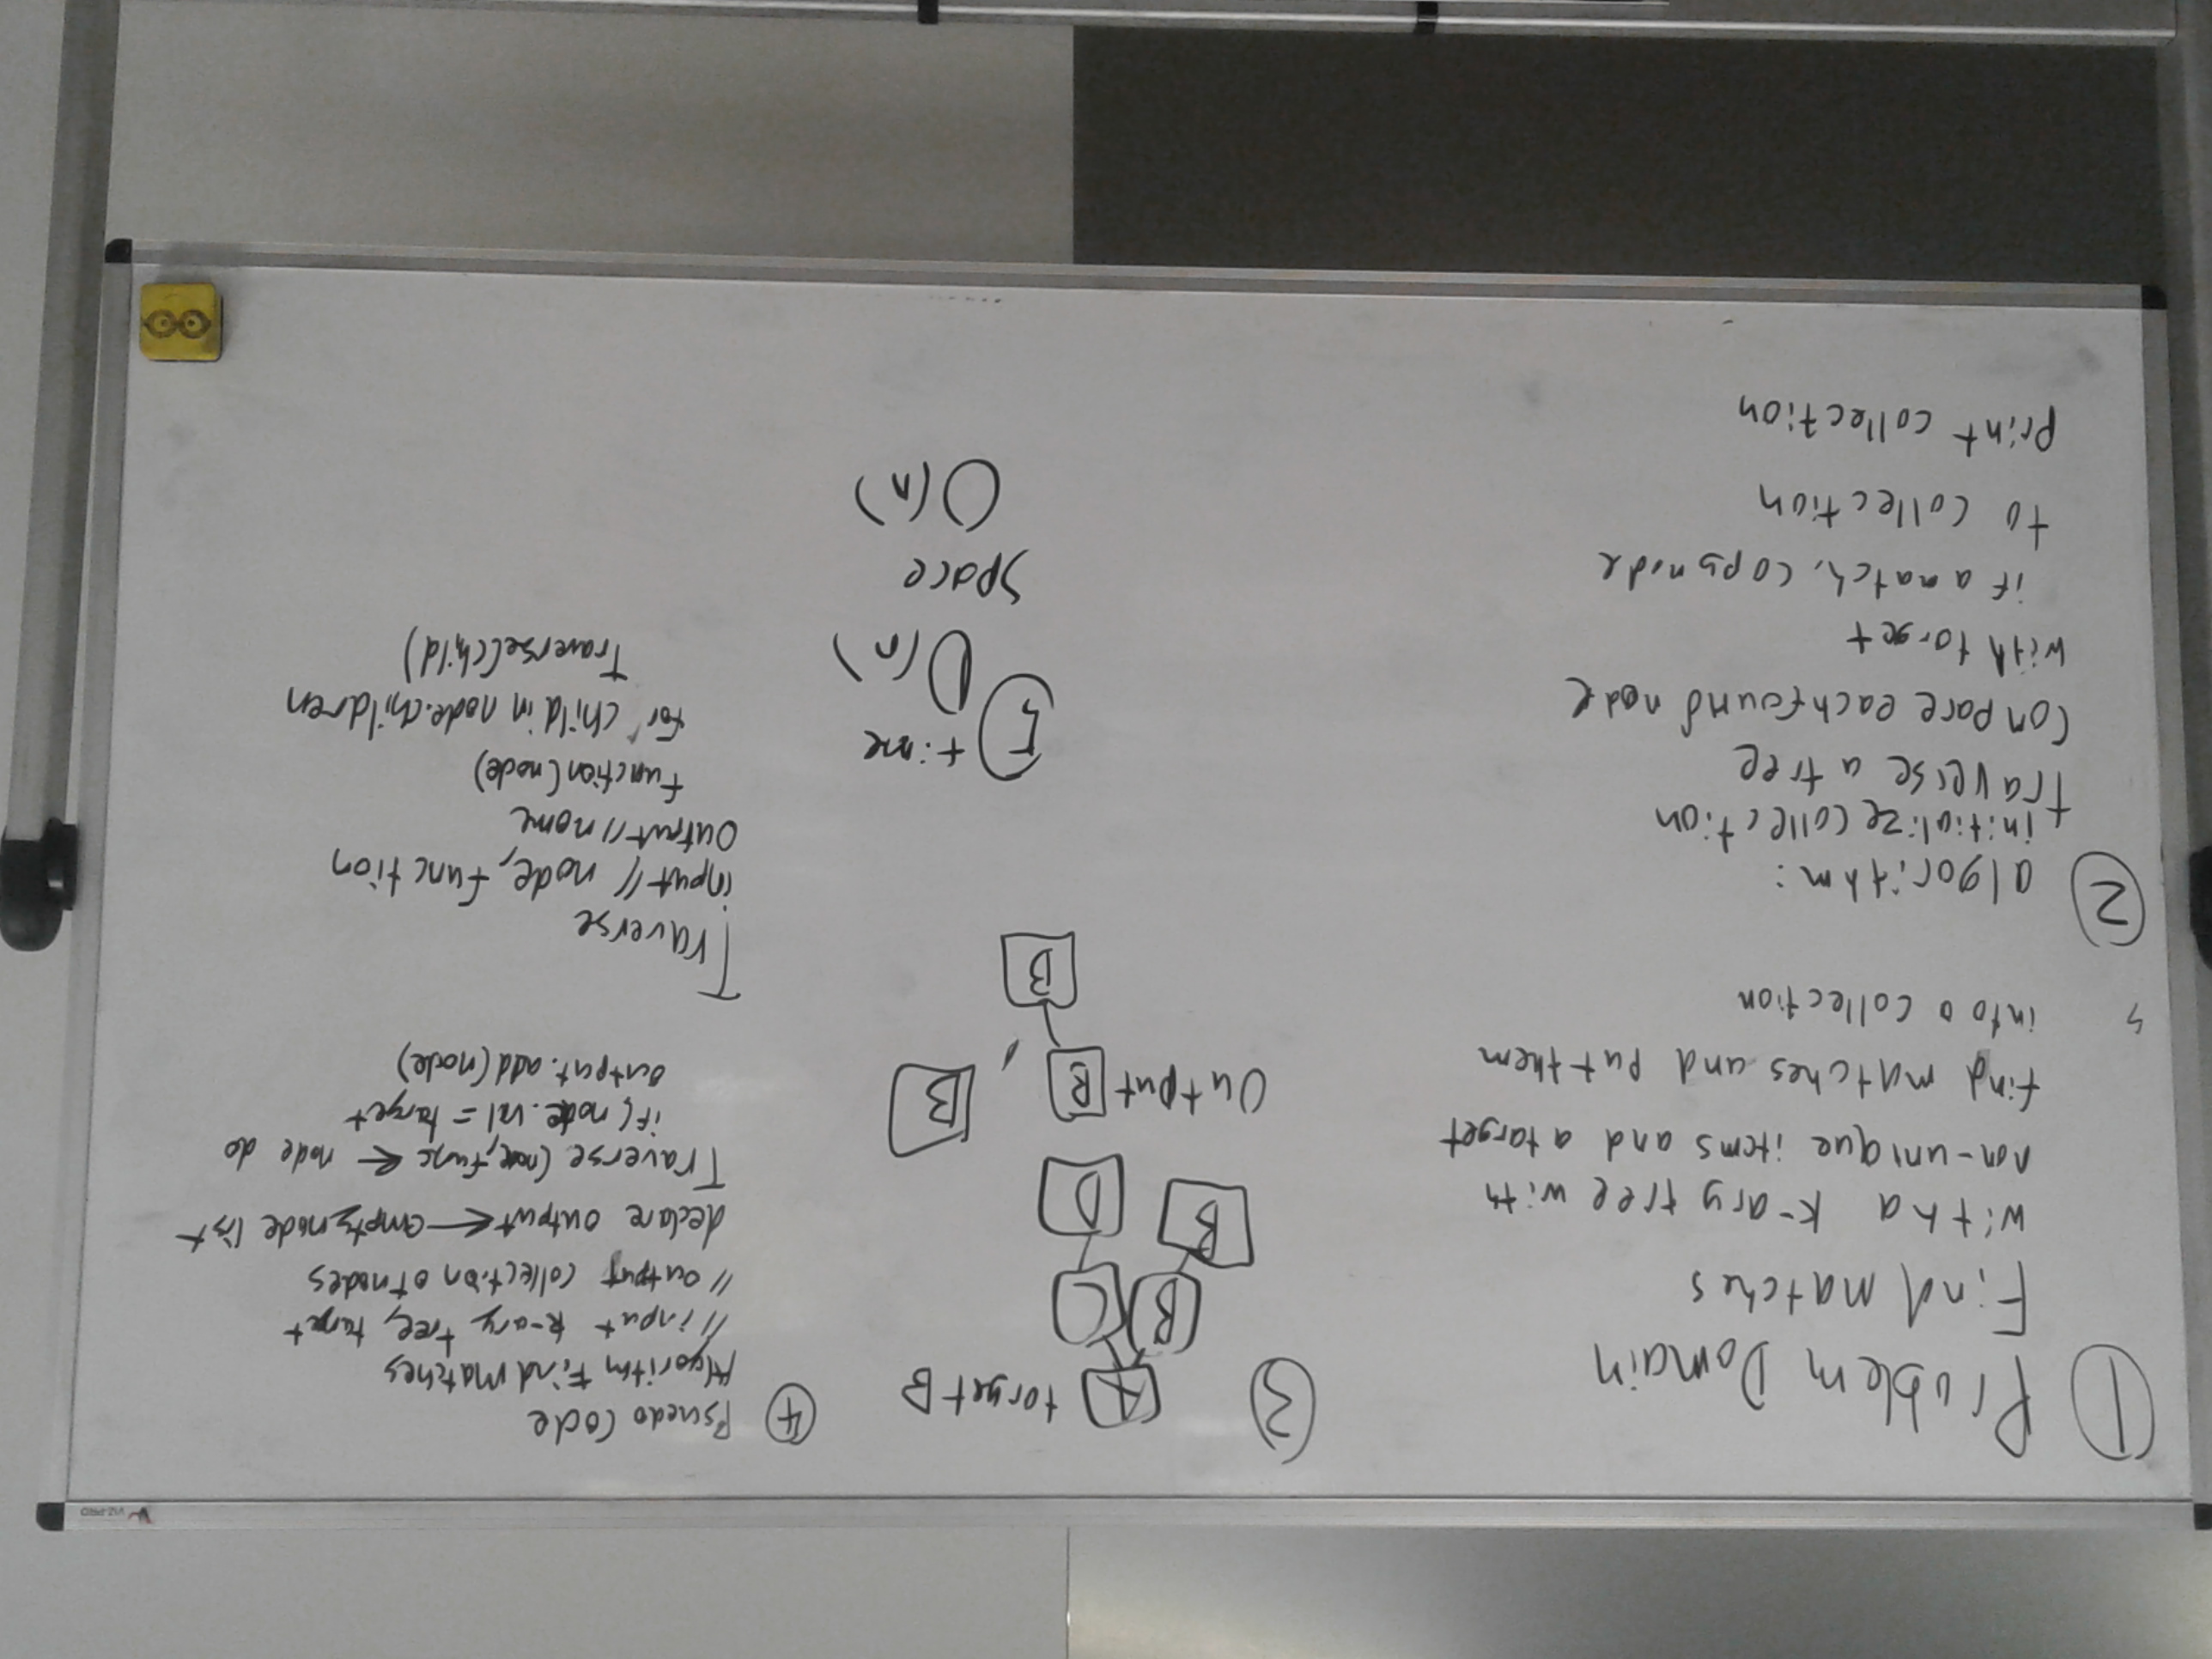 ① Problem Domain
Find matches
with a k-ary tree with
non-unique items and a target
find matches and put them
into a collection
② algorithm:
initialize collection
traverse a tree
Compare each found node
with target
if a match, copy node
to collection
print collection
③ A target B
B C
B D
Output B , B
B
④ Psuedo Code
Algoritm Find Matches
// input k-ary tree, target
// output collection of nodes
declare output ← empty node list
Traverse (node, func ← node do
if( node.val = target
output.add(node)
Traverse
input // node, function
Output // nome
function(node)
for child in node.children
Traverse(child)
⑤ time
O(n)
Space
O(n)
VIZ-PRO